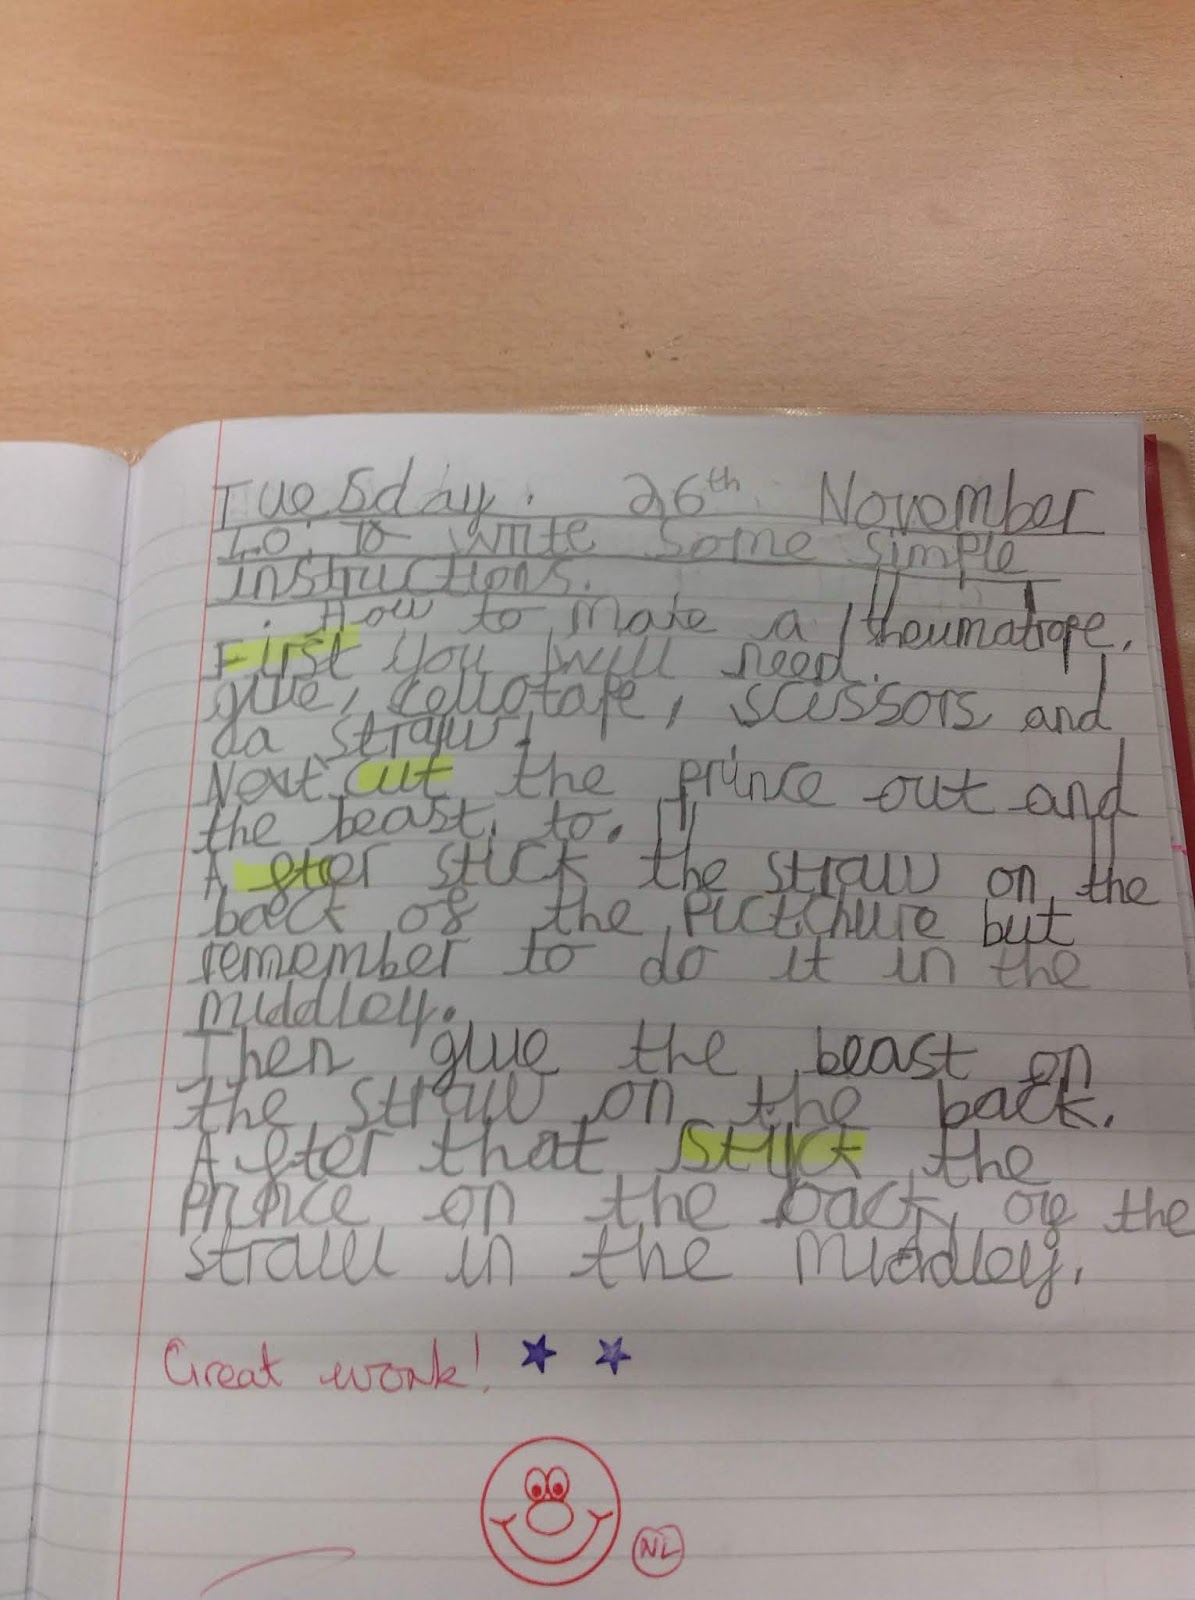 Tuesday. 26th November
L.O. To write some simple
instructions.
How to make a theumatrope.
First you will need.
glue, cellotape, scissors and
a straw.
Next cut the prince out and
the beast. to.
After stick the straw on the
back of the pictchure but
remember to do it in the
middley.
Then glue the beast on
the straw on the back.
After that stick the
prince on the back of the
straw in the middley.
Great work!
NL